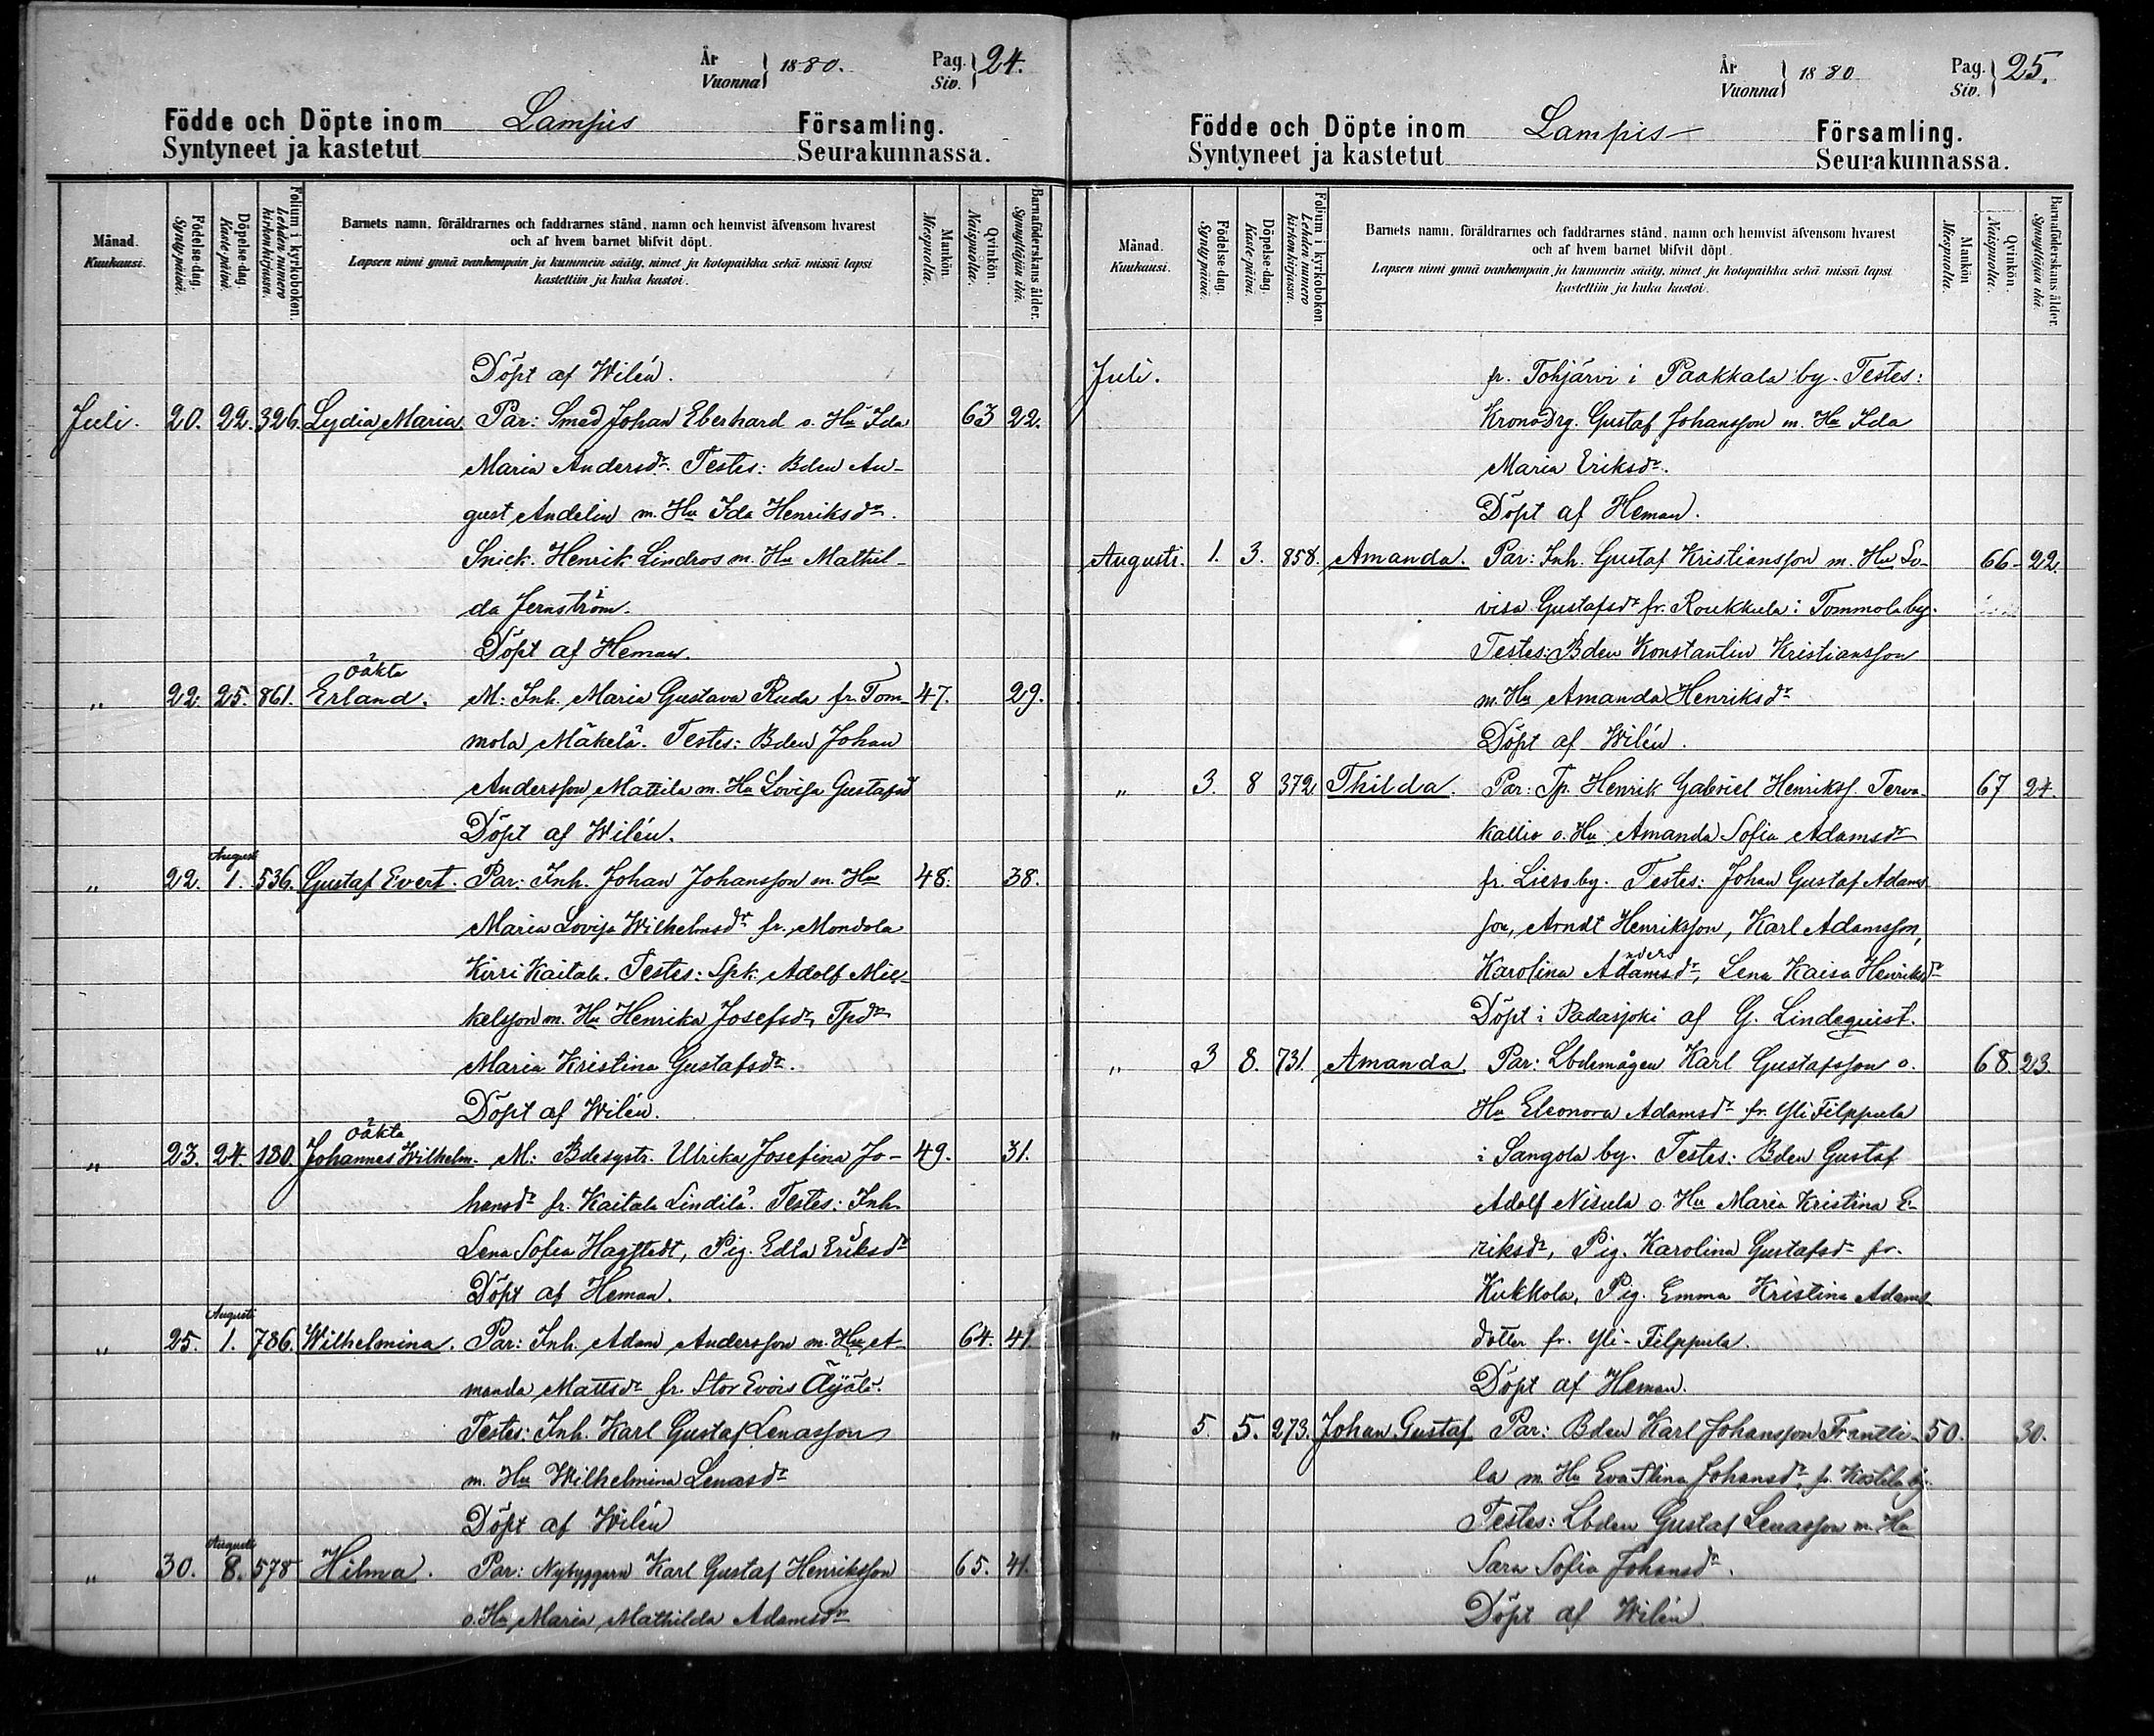 År
Vuonna } 1880.
Pag.
Siv. } 24.
Födde och Döpte inom Lampis Församling.
Syntyneet ja kastetut Seurakunnassa.
Månad.
Kuukausi.
Födelse-dag.
Syntypäivä.
Döpelse-dag.
Kaste päivä.
Folium i kyrkoboken.
Lehden numero
kirkonkirjassa.
Barnets namn, föräldrarnes och faddrarnes stånd, namn och hemvist äfvensom hvarest
och af hvem barnet blifvit döpt.
Lapsen nimi ynnä vanhempain ja kummein sääty, nimet ja kotopaikka sekä missä lapsi
kastettiin ja kuka kastoi.
Mankön.
Miespuolta.
Qvinkön.
Naispuolta.
Barnaföderskans ålder.
Synnyttäjän ikä.
Döpt af Wilén.
Juli. 20. 22. 326. Lydia Maria. Par: Smed Johan Eberhard o. Hu Ida 63 22.
Maria Andersdr. Testes: Bden Au-
gust Andelin m. Hu Ida Henriksdr.
Snick. Henrik Lindros m. Hu Mathil-
da Jernström.
Döpt af Heman.
oäkta
„ 22. 25. 861. Erland. M: Inh. Maria Gustava Ruda fr. Tom- 47. 29.
mola Mäkelä. Testes: Bden Johan
Andersson Mattila m. Hu Lovisa Gustafsd
Döpt af Wilén.
Augusti
„ 22. 1. 536. Gustaf Evert. Par: Inh. Johan Johansson m. Hu 48. 38.
Maria Lovisa Wilhelmsdr fr. Mondola
Kirri Kaitala. Testes: Spk. Adolf Mic-
kelsson m. Hu Henrika Josefsdr, Tpdr
Maria Kristina Gustafsdr.
Döpt af Wilén.
oäkta
„ 23. 24. 180. Johannes Wilhelm. M: Bdesystr. Ulrika Josefina Jo- 49. 31.
hansdr fr. Kaitala Lindilä. Testes: Inh.
Lena Sofia Hagstedt, Pig. Edla Eriksdr
Döpt af Heman.
Augusti
„ 25. 1. 786. Wilhelmina. Par: Inh. Adam Andersson m. Hu A- 64. 41.
manda Mattsdr fr. Stor Evois Äijälä.
Testes: Inh. Karl Gustaf Lenasson
m. Hu Wilhelmina Lenasdr
Döpt af Wilén
Augusti
„ 30. 8. 578 Hilma. Par: Nybyggaren Karl Gustaf Henriksson 65. 41.
o. Hu Maria Mathilda Adamsdr
År
Vuonna } 1880
Pag.
Siv. } 25.
Födde och Döpte inom Lampis Församling.
Syntyneet ja kastetut Seurakunnassa.
Månad.
Kuukausi.
Födelse-dag.
Syntypäivä.
Döpelse-dag.
Kaste päivä.
Folium i kyrkoboken.
Lehden numero
kirkonkirjassa.
Barnets namn, föräldrarnes och faddrarnes stånd, namn och hemvist äfvensom hvarest
och af hvem barnet blifvit döpt.
Lapsen nimi ynnä vanhempain ja kummein sääty, nimet ja kotopaikka sekä missä lapsi
kastettiin ja kuka kastoi.
Mankön
Miespuolta.
Qvinkön.
Naispuolta.
Barnaföderskans ålder.
Synnyttäjän ikä.
Juli. fr. Tohjärvi i Paakkala by. Testes:
Kronodrg. Gustaf Johansson m. Hu Ida
Maria Eriksdr.
Döpt af Heman.
Augusti. 1. 3. 858. Amanda. Par: Inh. Gustaf Kristiansson m. Hu Lo- 66- 22.
visa Gustafsdr fr. Roukkula i Tommola by.
Testes: Bden Konstantin Kristiansson
m. Hu Amanda Henriksdr
Döpt af Wilén.
„ 3. 8 372. Thilda. Par: Tp. Henrik Gabriel Henrikss. Terva- 67 24.
kallio o. Hu Amanda Sofia Adamsdr
fr. Lieso by. Testes: Johan Gustaf Adams-
son, Arndt Henriksson, Karl Adamsson,
nders
Karolina Adamsdr, Lena Kaisa Henriksdr
Döpt i Padasjoki af G. Lindequist.
„ 3 8. 731. Amanda. Par: Lbdemågen Karl Gustafsson o. 68. 23.
Hu Eleonora Adamsdr fr. Yli Filppula
i Sangola by. Testes: Bden Gustaf
Adolf Nisula o. Hu Maria Kristina E-
riksdr, Pig. Karolina Gustafsdr fr.
Kukkola, Pig. Emma Kristina Adams-
dotter fr. Yli-Filppula.
Döpt af Heman.
„ 5. 5. 273. Johan Gustaf Par: Bden Karl Johansson Frantti- 50. 30.
la m. Hu Eva Stina Johansdr, fr. Kostila by.
Testes: Lbden Gustaf Lenasson m. Hu
Sara Sofia Johansdr.
Döpt af Wilén